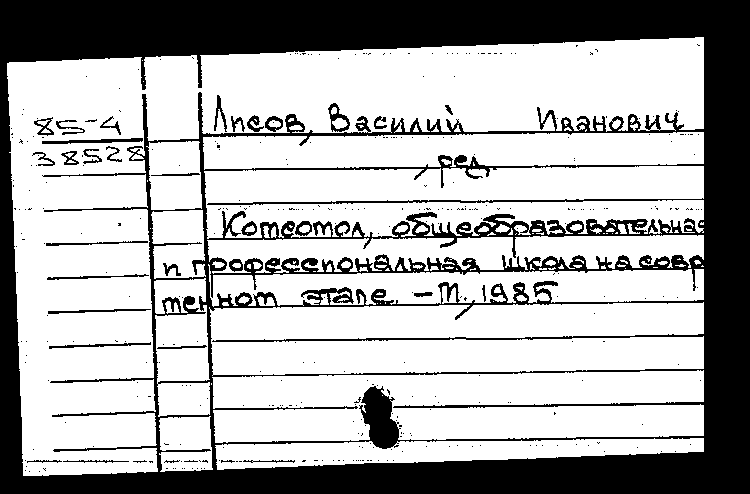 85-4
38528
Лисов, Василий Иванович
, ред.
Комсомол, общеобразовательная
и профессиональная школа на совр
менном этапе. – М., 1985